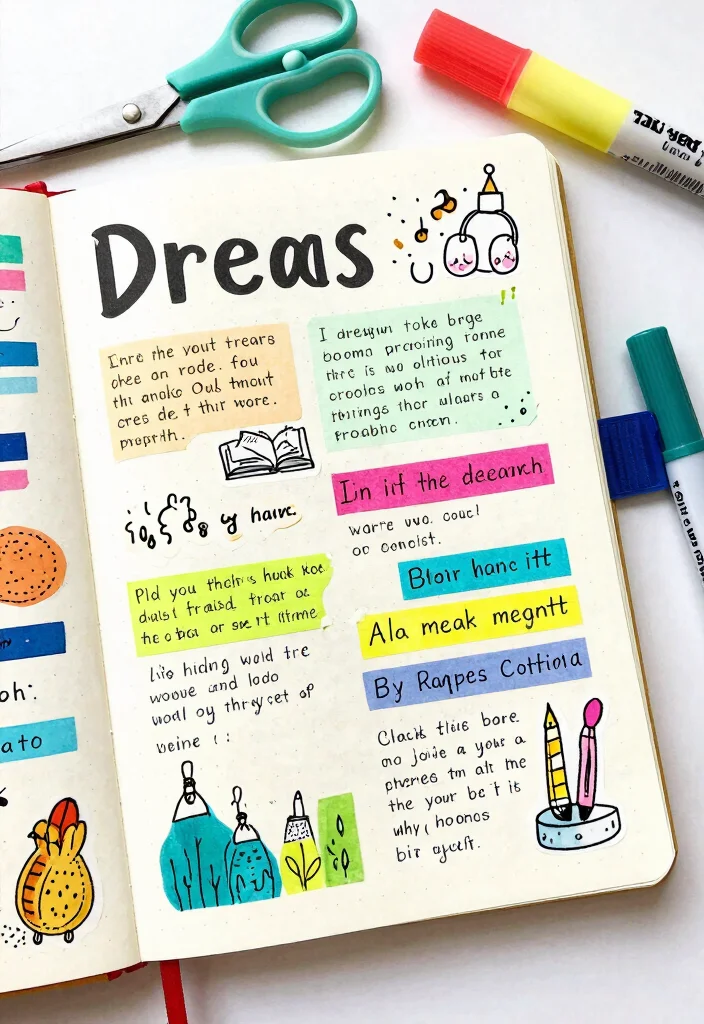 Dreas
Inre the yout trears
chee an rode. fou
thi anako Oub tmout
cres de t thir wore.
preprith.
I dresyun toke brge
booma prcroiring ronne
thre is wo olitious tor
croolos woh af mot bte
rininings thor ulaars a
froabhc cncen.
oy haive.
Iin iif the deearch
worre wvo. couc!
oo conoist.
Bloir hanc itt
Ala meak megntt
By Raypes Cottioia
Pld you tholris huok koc
dulst fraisd froar oc
he obca or set it iitme
Liis hidng wold tre
wovue and lodo
wodl oy thrycet of
weine
Clack tiis bore.
mo joiie a yous a
phreries tm alt me
the your be t is
why( hoonos
bir aycft.
oh:
ato